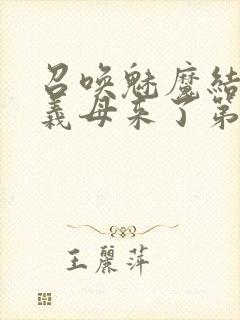 召唤魅魔结
義母来了第
王麗萍